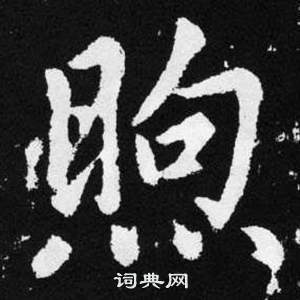 煦
词典网